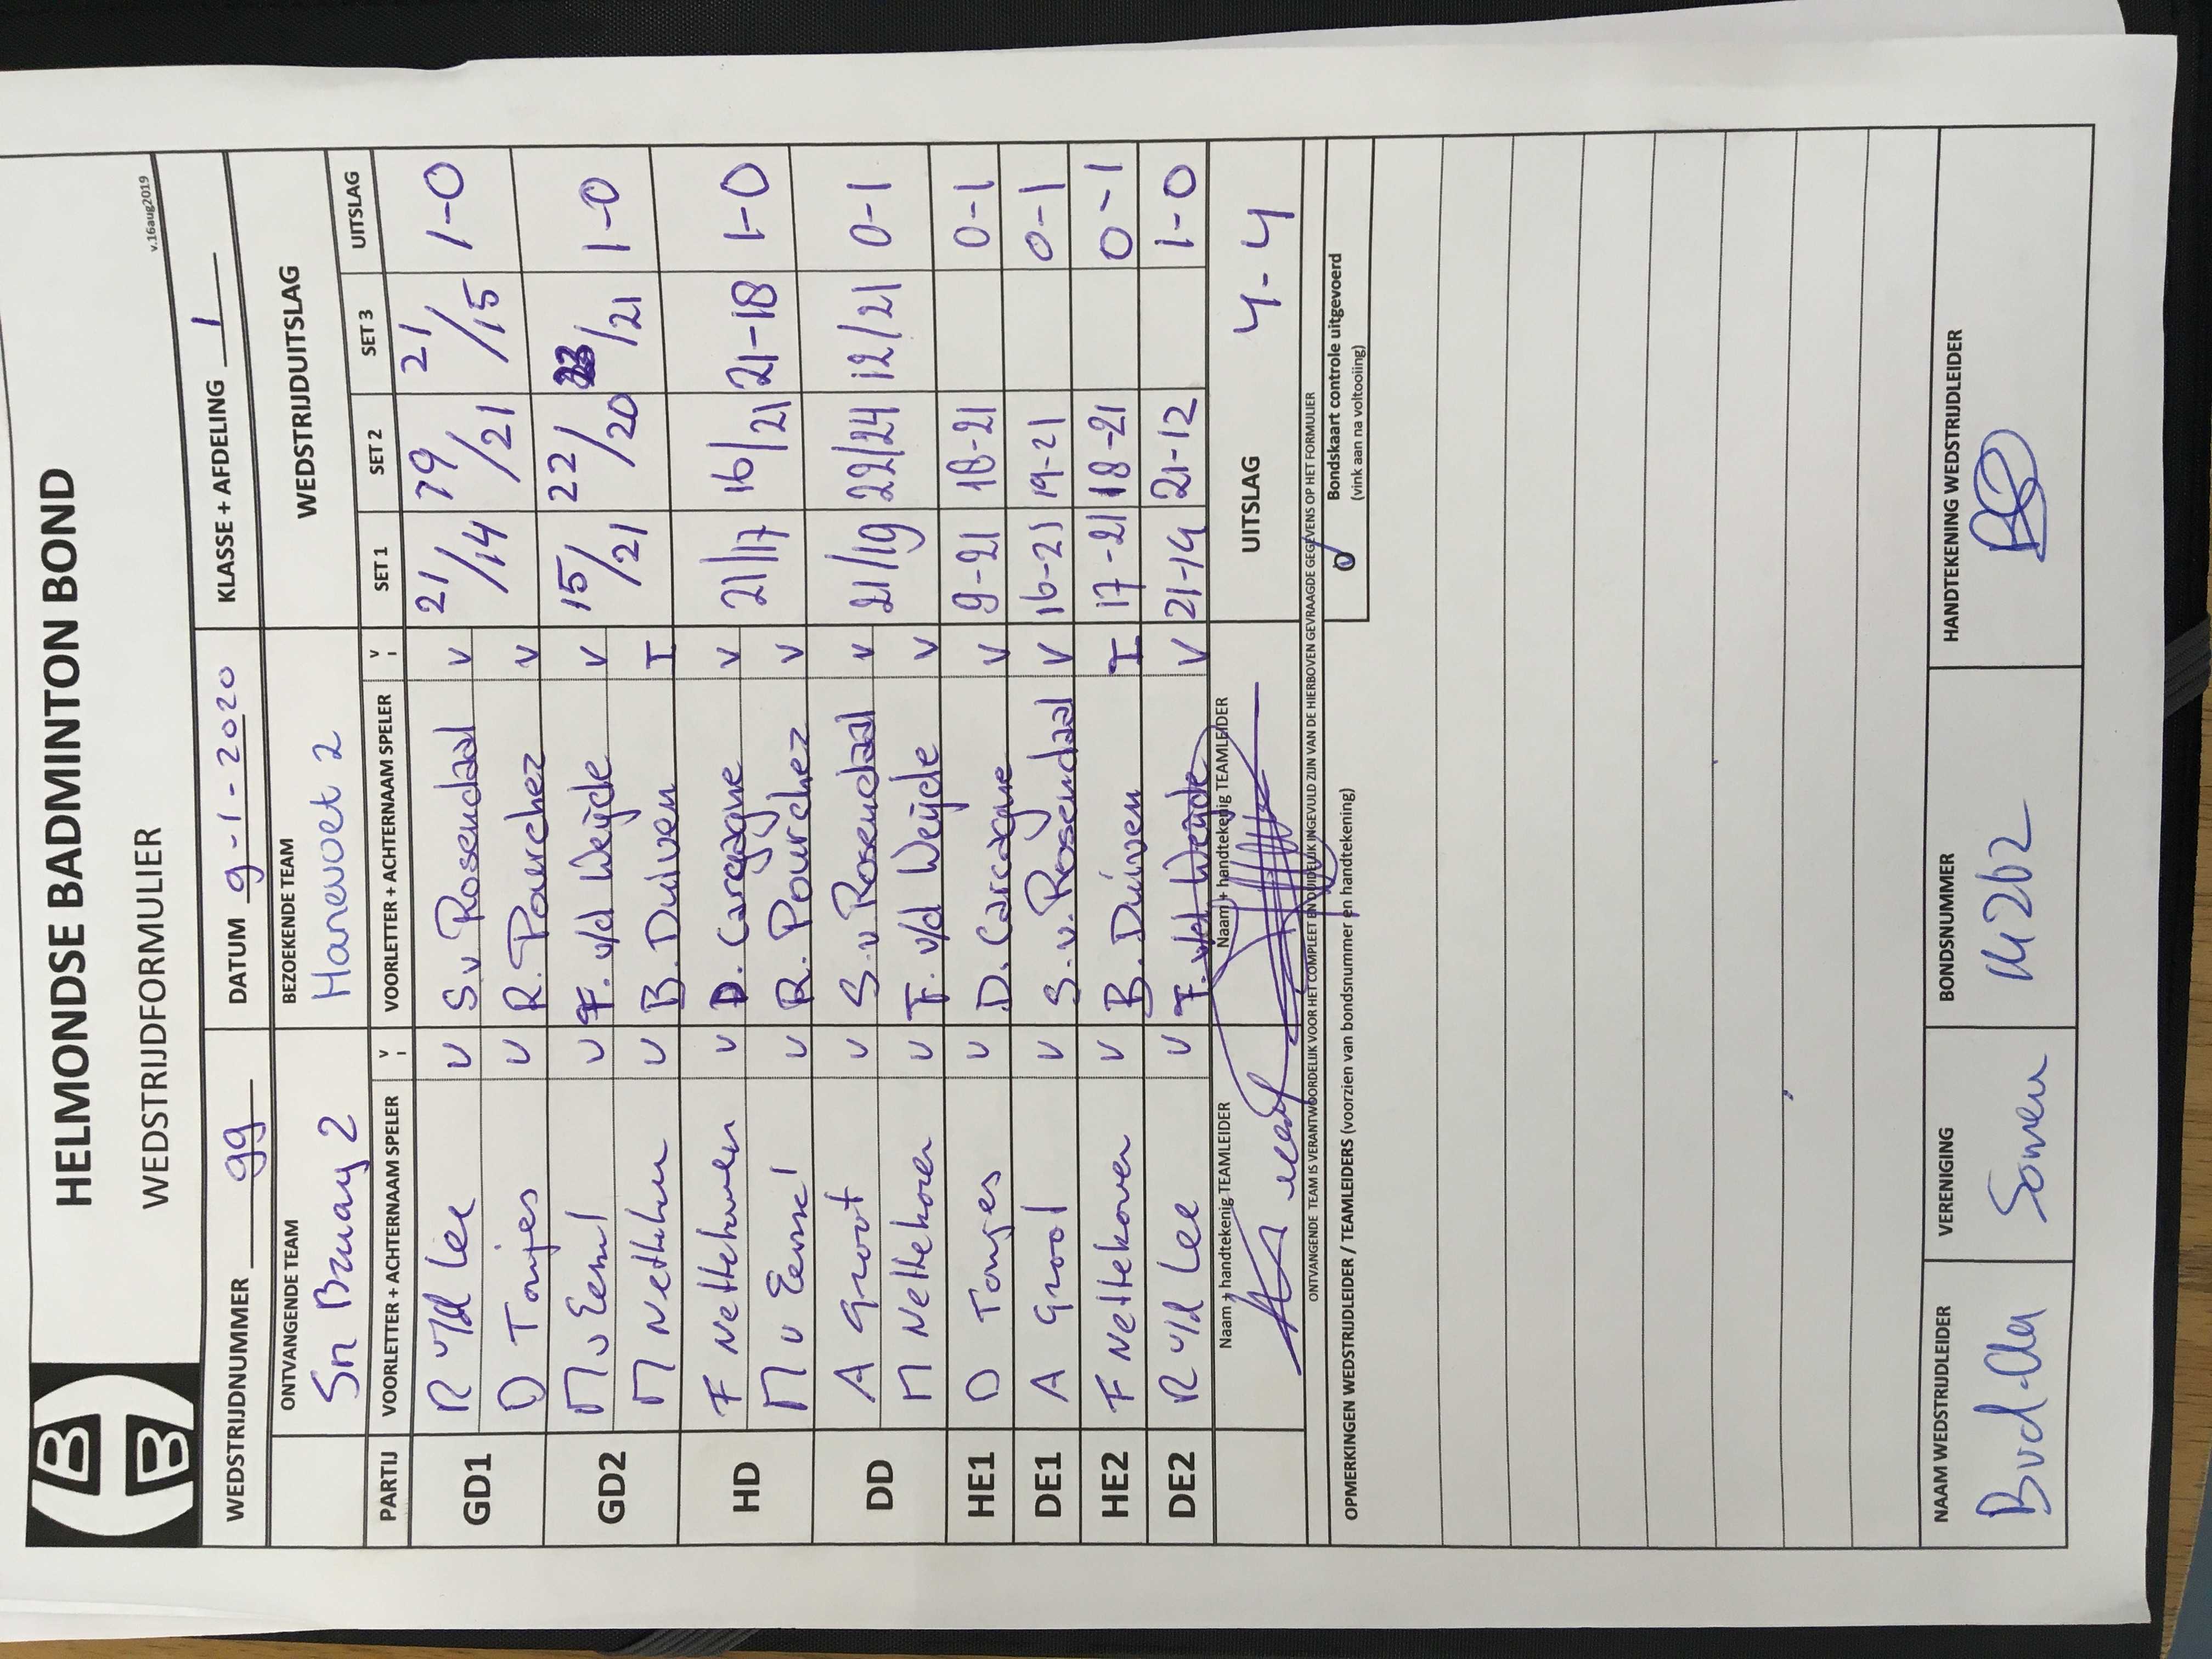 HELMONDSE BADMINTON BOND
WEDSTRIJDFORMULIER
v.16aug2019
WEDSTRIJDNUMMER 99 DATUM 9-1-2020 KLASSE + AFDELING 1
ONTVANGENDE TEAM BEZOEKENDE TEAM WEDSTRIJDUITSLAG
Sn Bruay 2 Hanevoet 2
PARTIJ VOORLETTER + ACHTERNAAM SPELER V I VOORLETTER + ACHTERNAAM SPELER V I SET 1 SET 2 SET 3 UITSLAG
GD1 R v/d Lee v S v Rosendaal v 21/14 19/21 21/15 1-0
D Tonjes v R. Pourchez v
GD2 M v Eessel v F. v/d Weijde v 15/21 22/20 /21 1-0
M Nettekoven v B. Duiven I
HD F Nettekoven v D. Carcagne v 21/17 16/21 21-18 1-0
M v Eessel v R. Pourchez v
DD A Groot v S. v Rosendaal v 21/19 22/24 12/21 0-1
M Nettekoven v F. v/d Weijde v
HE1 D Tonjes v D. Carcagne v 9-21 18-21 0-1
DE1 A Groot v S. v. Rosendaal v 16-21 19-21 0-1
HE2 F Nettekoven v B. Duiven I 17-21 18-21 0-1
DE2 R v/d Lee v F. v/d Weijde v 21-14 21-12 1-0
Naam + handtekenig TEAMLEIDER Naam + handtekenig TEAMLEIDER UITSLAG 4-4
ONTVANGENDE TEAM IS VERANTWOORDELIJK VOOR HET COMPLEET EN DUIDELIJK INGEVULD ZIJN VAN DE HIERBOVEN GEVRAAGDE GEGEVENS OP HET FORMULIER
OPMERKINGEN WEDSTRIJDLEIDER / TEAMLEIDERS (voorzien van bondsnummer en handtekening)
Bondskaart controle uitgevoerd
(vink aan na voltooiing)
NAAM WEDSTRIJDLEIDER VERENIGING BONDSNUMMER HANDTEKENING WEDSTRIJDLEIDER
Someren